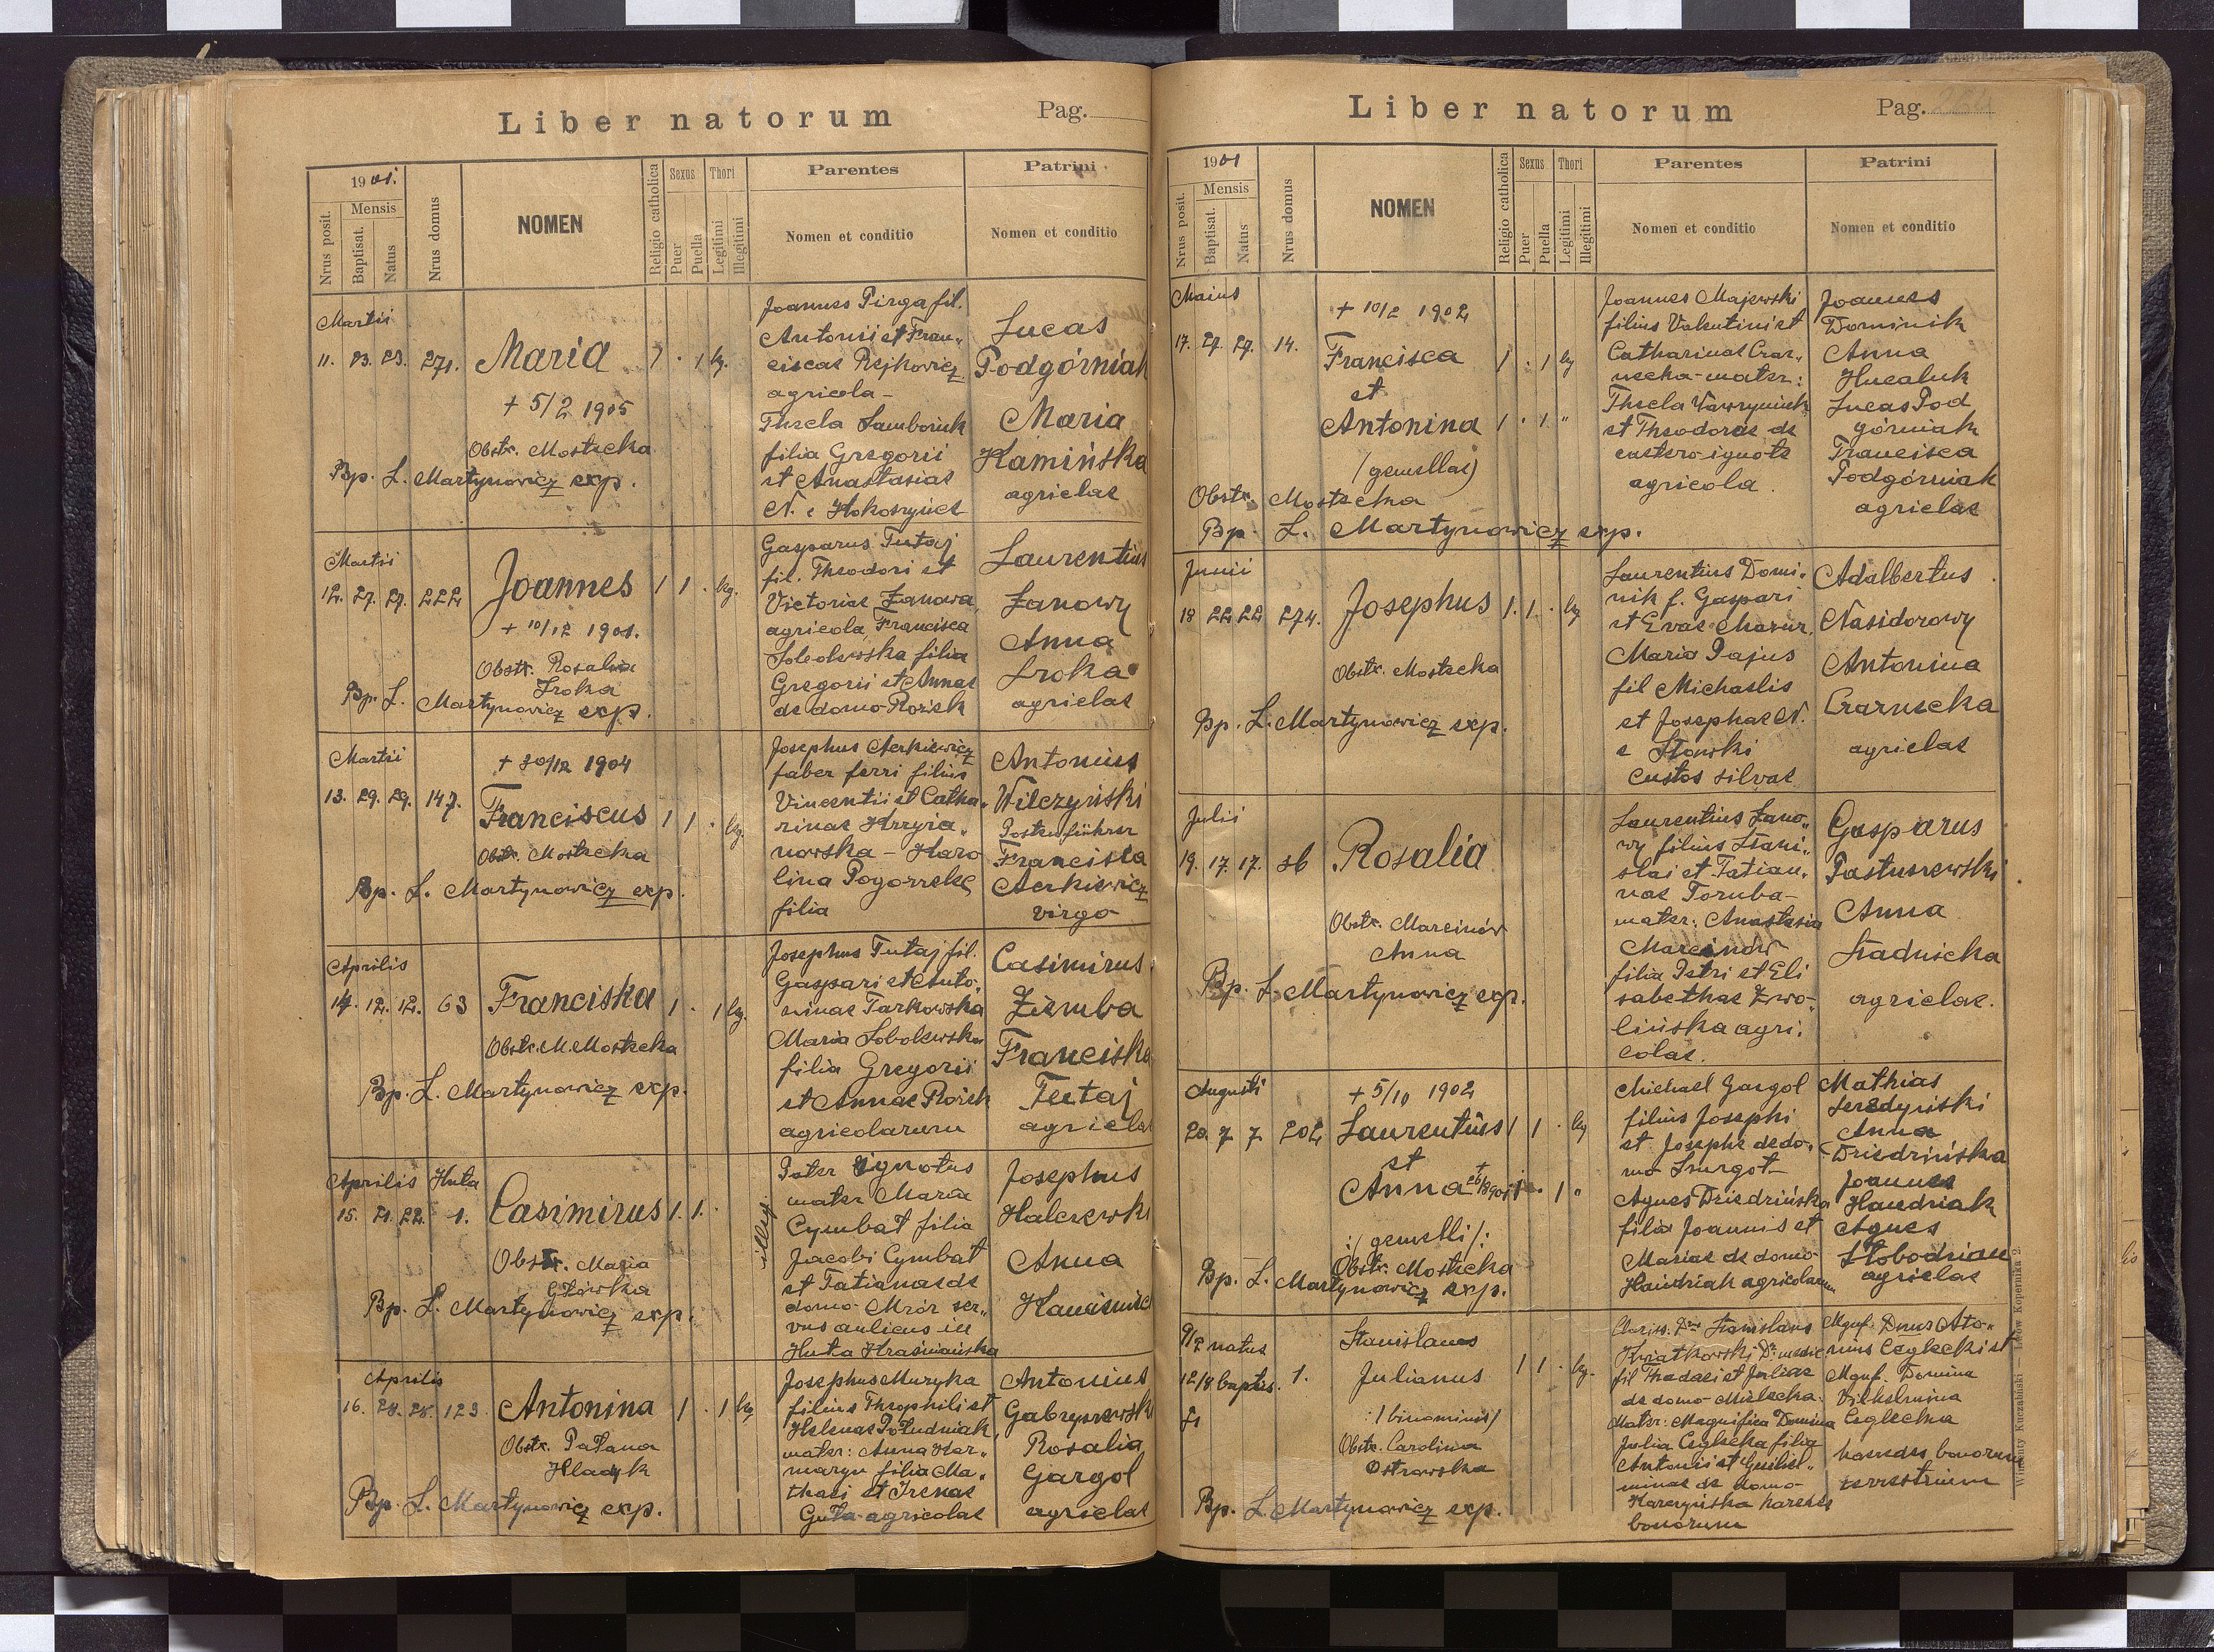 Liber natorum Pag.
1901.
Nrus posit.
Mensis
Baptisat.
Natus
Nrus domus
NOMEN
Religio catholica
Sexus
Puer
Puella
Thori
Legitimi
Illegitimi
Parentes
Nomen et conditio
Patrini
Nomen et conditio
Martii
11. 23. 23. 271. Maria 1 . 1 lg.
+ 5/2 1905
Obstr. Mostecka
Bp. L. Martynowicz exp.
Joannes Pirga fil.
Antonii et Fran„
ciscae Rejkowicz
agricola -
Thecla Samboriuk
filia Gregorii
et Anastasiae
Lucas
Podgórniak
Maria
Kamińska
agricolae
Martii
12. 27. 27. 222 Joannes 1 1 . lg.
+ 10/12 1901.
Obstr. Rosalia
Sroka
Bp. L. Martynowicz exp.
Gasparus Tutaj
fil. Theodori et
Victoriae Zanowa,
agricola, Francisca
Sobolewska filia
Gregorii et Annae
de domo Rozick
Laurentius
Zanowy
Anna
Sroka
agricolae
Martii
+ 30/12 1904
13. 29. 29. 147. Franciscus 1 1 . lg.
Obstr. Mostecka
Bp. L. Martynowicz exp.
Josephus Aerkiewicz
faber ferri filius
Vincentii et Catha„
rinae
nowska - Karo
lina
filia
Antonius
Wilczyński
Postenführer
Francisca
Aerkiewicz
virgo
Aprilis
14. 12. 12. 63 Franciska 1 . 1 lg.
Obstr. M. Mostecka
Bp. L. Martynowicz exp.
Josephus Tutaj fil.
Gaspari et Anto„
ninae Tarkowska
Maria Sobolewska
filia Gregorii
et Annae Rozick
agricolarum
Casimirus
Ziemba
Franciska
Tutaj
agricolae
Aprilis Huta
15. 21. 22. 1. Casimirus 1. 1. . illeg
Obstr. Maria
Bp. L. Martynowicz exp.
Pater ignotus
mater Maria
Cymbat filia
Jacobi Cymbat
et Tatianae de
domo Mróz ser„
vus aulicus in
Huta
Josephus
Anna
Aprilis
16. 28. 28. 123. Antonina 1 . 1 lg
Obstr. Tatana
Hladyk
Bp. L. Martynowicz exp.
Josephus Muzyka
filius Theophili et
Helenae Południak,
mater: Anna Har„
maryn filia Ma„
thaei et Irenae
Guta agricolae
Antonius
Gabryszewski
Rosalia
Gargol
agricolae
Liber natorum Pag.
1901
Nrus posit.
Mensis
Baptisat.
Natus
Nrus domus
NOMEN
Religio catholica
Sexus
Puer
Puella
Thori
Legitimi
Illegitimi
Parentes
Nomen et conditio
Patrini
Nomen et conditio
Maius
+ 10/2 1902
17. 27. 27. 14. Francisca 1 . 1 lg
et
Antonina 1 . 1 "
(gemellae)
Obstr. Mostecka
Bp. L. Martynowicz exp.
Joannes Majewski
filius Valentini et
Catharinae Czar„
necka - mater:
Thecla Wawryniuk
et Theodorae de
caetero ignote
agricola.
Joannes
Dominik
Anna
Hucaluk
Lucas Pod
górniak
Francisca
Podgórniak
agricolae
Junii
18 22 22 274. Josephus 1. 1. . lg
Obstr. Mostecka
Bp. L. Martynowicz exp.
Laurentius Domi„
nik f. Gaspari
et Evae Mazur.
Maria Pajus
fil Michaelis
et Josephae N.
custos silvae
Adalbertus
Nasidorowy
Antonina
Czarnecka
agricolae
Julii
19. 17. 17. 36 Rosalia
Obstr. Marcinów
Anna
Bp. L. Martynowicz exp.
Laurentius Zano„
wy filius Stani„
slai et Tatian„
nae Poruba -
mater: Anastasia
Marcinów
filia Petri et Eli
sabethae Zwo-
lińska agri„
colae.
Gasparus
Pastuszewski
Anna
Stadnicka
agricolae.
Augusti
+ 5/10 1902
20. 7 7 202 Laurentius 1 1 . lg
et
Anna 1 . 1 "
:/gemelli/:
Obstr. Mostecka
Bp. L. Martynowicz exp.
Michael Gargol
filius Josephi
et Josephe de do„
mo Szurgot
Agnes Dziedzińska
filia Joannis et
Mariae de domo
Handziak agricolarum
Mathias
Seredyński
Anna
Dziedzińska
Joannes
Handziak
Agnes
Słobodzian
agricolae
9/2 natus
12/8 baptis. 1. Stanislaus
Julianus 1 1 . lg.
21
:(binominus)
Obstr. Carolina
Ostrowska
Bp. L. Martynowicz exp.
Clariss. Dnus Stanislaus
Kwiatkowski Dr. medic
fil Thadaei et Juliae
de domo Mielecka.
Mater: Magnifica Domina
Julia Cęglecka filia
Antonii et Guiliel„
minae de domo
haeres
bonorum
Mgnf. Dnus Anto„
nius Cęglecki et
Mgnf. Domina
Vilhelmina
Cęglecka
haeredes bonorum
terrestrium
Wincenty Kuczabiński — Lwów Kopernika 2.